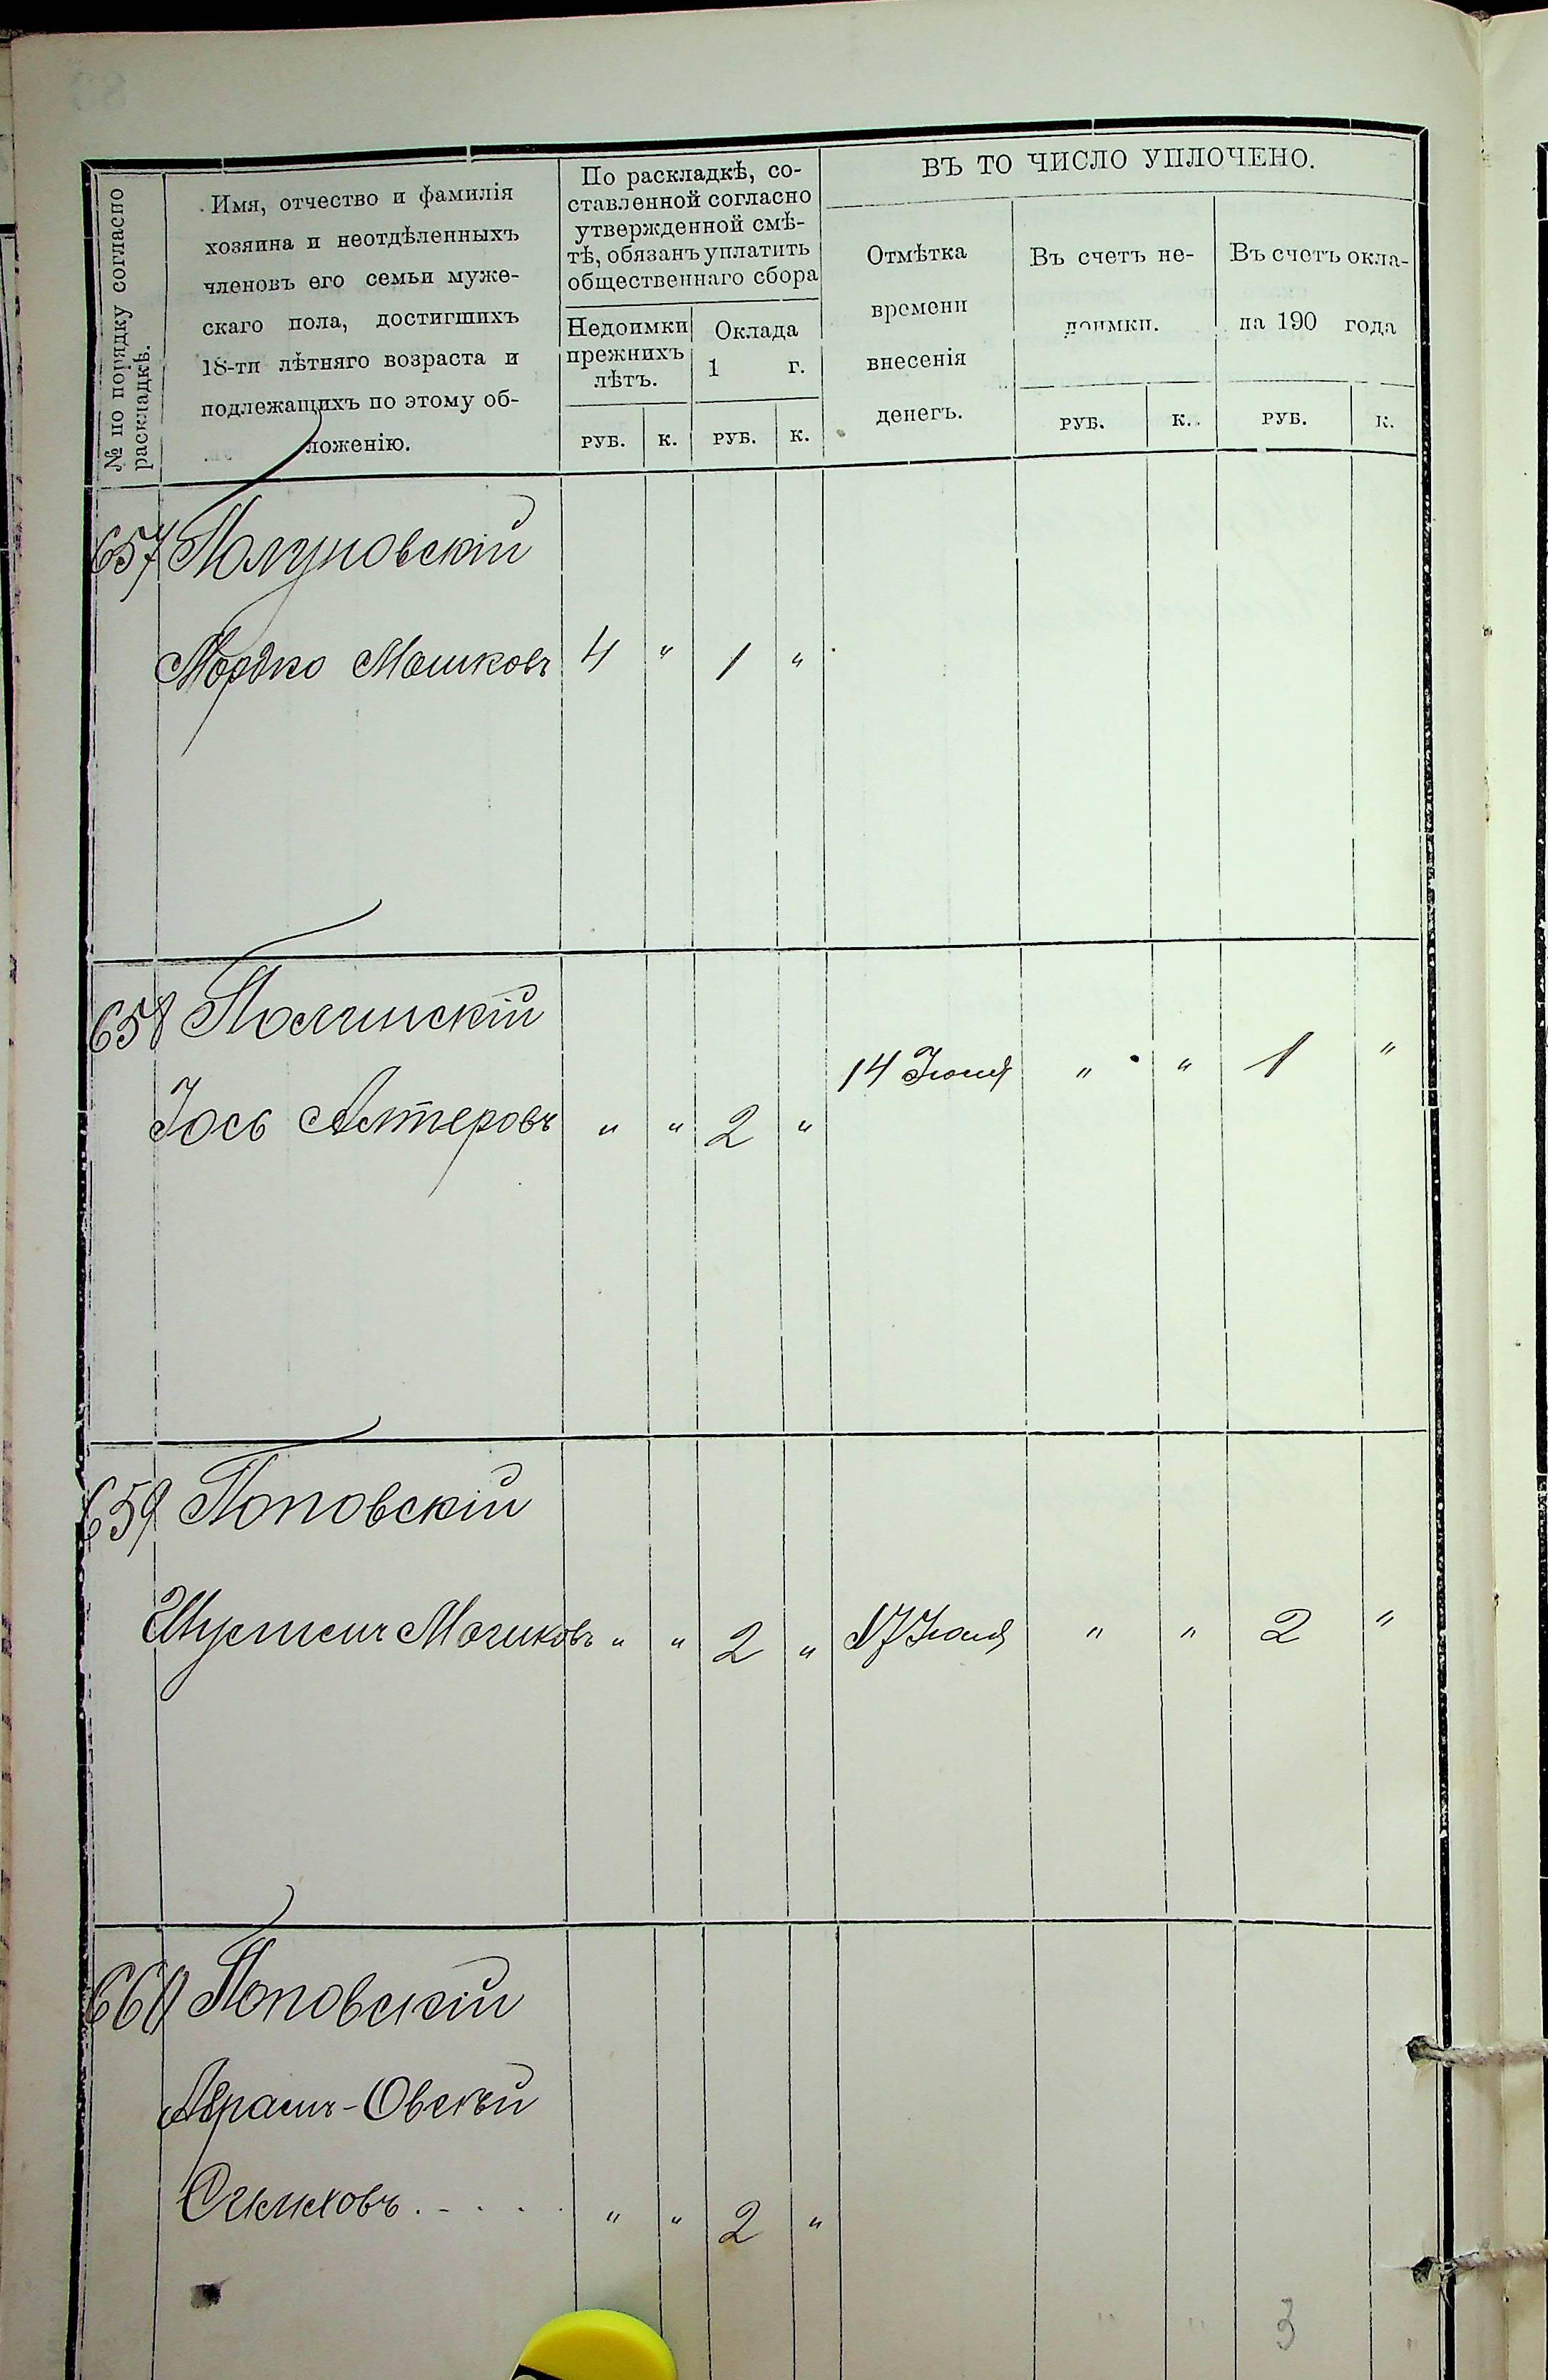 № по порядку согласно
раскладкѣ.
Имя, отчество и фамилія
хозяина и неотдѣленныхъ
членовъ его семьи муже-
скаго пола, достигшихъ
18-ти лѣтняго возраста и
подлежащихъ по этому об-
ложенію.
По раскладкѣ, со-
ставленной согласно
утвержденной смѣ-
тѣ, обязанъ уплатить
общественнаго сбора
Недоимки
прежнихъ
лѣтъ.
Оклада
1 г.
РУБ. К. РУБ. К.
ВЪ ТО ЧИСЛО УПЛОЧЕНО.
Отмѣтка
времени
внесенія
денегъ.
Въ счетъ не-
доимки.
Въ счетъ окла-
на 190 года
РУБ. К. РУБ. К.
657 Полуновскій
Мордко Мошковъ 4 " 1 "
658 Полчинскій
14 Іюня " " 1 "
Іось Алтеровъ " " 2 "
659 Поповскій
Мошковъ " " 2 " 17 Іюня " " 2 "
660 Поповскій
Абрамъ-Овсѣй
" " 2 "
" " 3 "